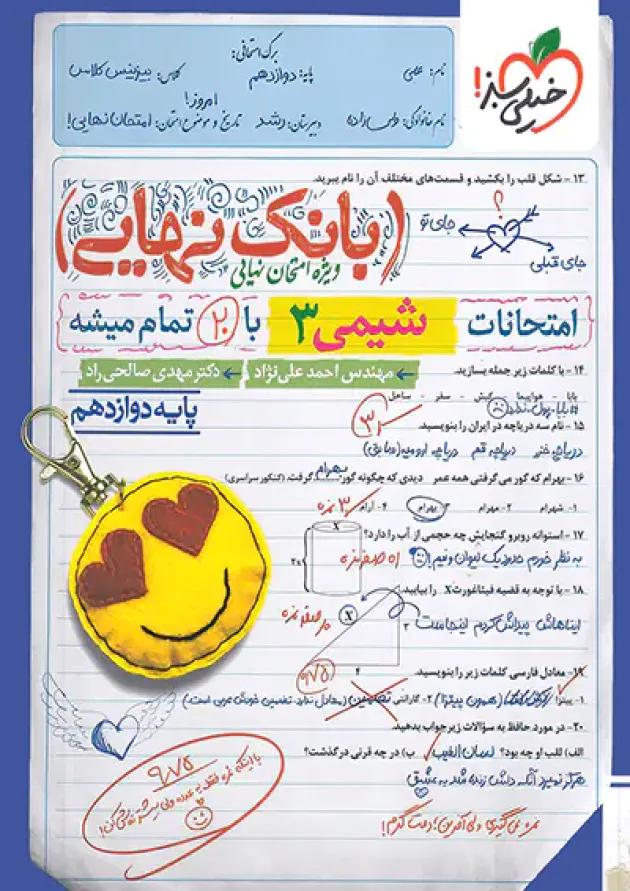 خیلی سبز!
برگ امتحانی:
نام: علمی
پایه: دوازدهم
کلاس: بیزینس کلاس
دبیرستان: رشد
تاریخ و موضوع امتحان: امروز! امتحان نهایی!
۱۳ - شکل قلب را بکشید و قسمت‌های مختلف آن را نام ببرید.
؟
جای تو
جای قبلی
(بانک نهایی)
ویژه امتحان نهایی
امتحانات شیمی ۳ با ۲۰ تمام میشه
۱۴ - با کلمات زیر جمله بسازید.
مهندس احمد علی‌نژاد
دکتر مهدی صالحی‌راد
بابا - هواپیما - کیش - سفر - ساحل
#بابا_پول_نداره
پایه دوازدهم
۱۵ - نام سه دریاچه در ایران را بنویسید.
دریاچه خزر دریاچه قم دریاچه ارومیه (سابق)
۱۶ - بهرام که گور می‌گرفتی همه عمر دیدی که چگونه گور بهرام گرفت. (کنکور سراسری)
۱- شهرام ۲- مهرام ۳- بهرام ۴- آرام
۳ نمره
۱۷ - استوانه روبرو گنجایش چه حجمی از آب را دارد؟
X
به نظر خودم حدود یک لیوان و نیم!
۱۸ - با توجه به قضیه فیثاغورث X را بیابید.
X
۳
۴
ایناهاش پیداش کردم اینجاست
۱۹ - معادل فارسی کلمات زیر را بنویسید.
۱- پیتزا (همون پیتزا) ۲- گارانتی تضمین (معادل ندارد. تضمین خودش عربی است.)
۲۰ - در مورد حافظ به سؤالات زیر جواب بدهید.
الف) لقب او چه بود؟ لسان الغیب ب) در چه قرنی درگذشت؟
هرگز نمیرد آنکه دلش زنده شد به عشق
۹/۷۵
نمره نمی‌گیری ولی آفرین! دمت گرم!